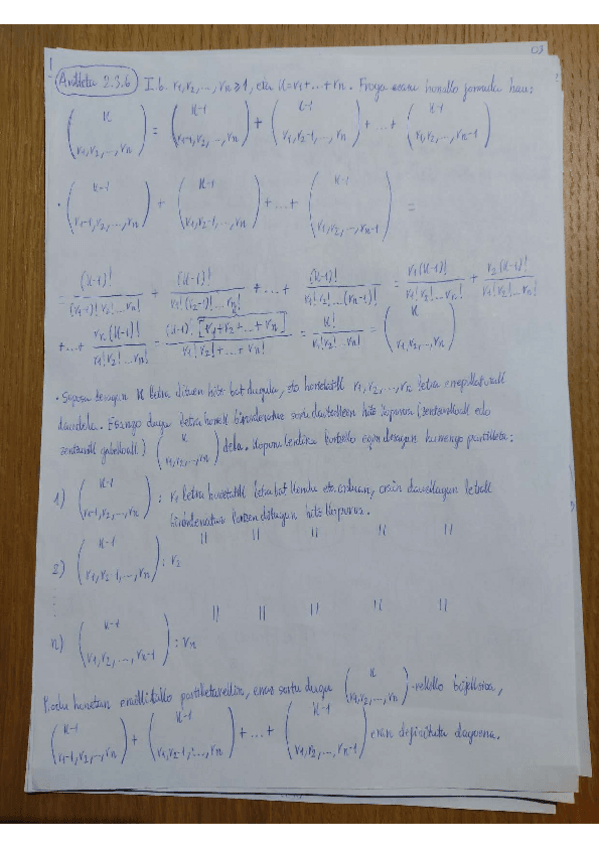 03
Ariketa 2.3.6 I.b. r₁, r₂, ..., rₙ ≥ 1, eta k = r₁ + ... + rₙ. Froga ezazu honako formula hau:
(k; r₁, r₂, ..., rₙ) = (k-1; r₁-1, r₂, ..., rₙ) + (k-1; r₁, r₂-1, ..., rₙ) + ... + (k-1; r₁, r₂, ..., rₙ-1)
· (k-1; r₁-1, r₂, ..., rₙ) + (k-1; r₁, r₂-1, ..., rₙ) + ... + (k-1; r₁, r₂, ..., rₙ-1) =
= (k-1)! / (r₁-1)! r₂! ... rₙ! + (k-1)! / r₁! (r₂-1)! ... rₙ! + ... + (k-1)! / r₁! r₂! ... (rₙ-1)! = r₁(k-1)! / r₁! r₂! ... rₙ! + r₂(k-1)! / r₁! r₂! ... rₙ!
+ ... + rₙ(k-1)! / r₁! r₂! ... rₙ! = (k-1)! [r₁ + r₂ + ... + rₙ] / r₁! r₂! + ... + rₙ! = k! / r₁! r₂! ... rₙ! = (k; r₁, r₂, ..., rₙ)
· Suposa dezagun k letra dituen hitz bat dugula, eta horietatik r₁, r₂, ..., rₙ letra errepikaturik
daudela. Esango dugu letra horiek birordenatuz sortu daitezkeen hitz kopurua (zentzuzkoak edo
zentzurik gabekoak) (k; r₁, r₂, ..., rₙ) dela. Kopuru berdina kontatzeko egin dezagun hurrengo partiketa:
1) (k-1; r₁-1, r₂, ..., rₙ) : r₁ letra horietatik letra bat kendu eta orduan, orain dauzkagun letrak
birordenatuz lortzen ditugun hitz kopurua.
2) (k-1; r₁, r₂-1, ..., rₙ) : r₂ " " " " "
n) (k-1; r₁, r₂, ..., rₙ-1) : rₙ " " " " "
Modu honetan eraikitako partiketarekin, (k; r₁, r₂, ..., rₙ)
(k-1; r₁-1, r₂, ..., rₙ) + (k-1; r₁, r₂-1, ..., rₙ) + ... + (k-1; r₁, r₂, ..., rₙ-1) eran definituta dagoena.